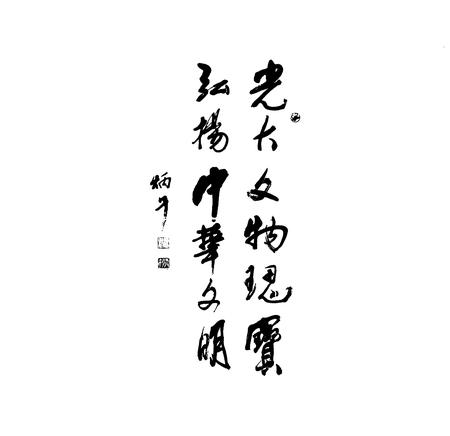 光大文物瑰寶
弘揚中華文明